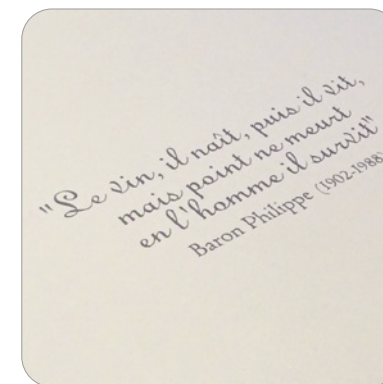 "Le vin, il naît, puis il vit,
mais point ne meurt
en l'homme il survit"
Baron Philippe (1902-1988)